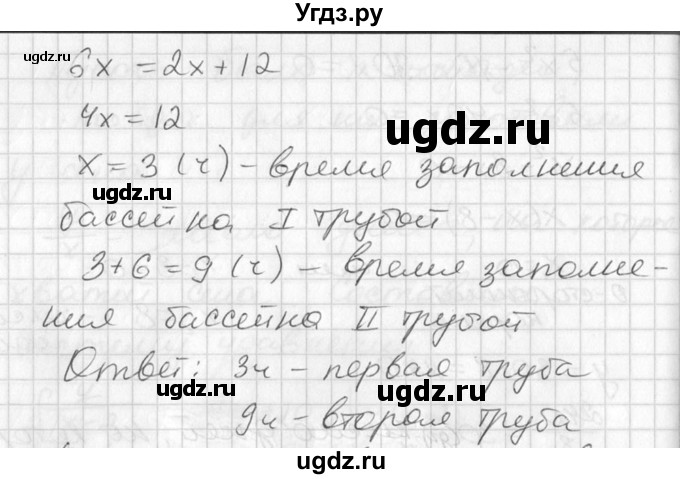 Угдз.ру
6x = 2x + 12
4x = 12
x = 3 (ч) - время заполнения
бассейна I трубой
3 + 6 = 9 (ч) - время заполне-
ния бассейна II трубой
Ответ: 3ч - первая труба
9ч - вторая труба
ugdz.ru
ugdz.ru
ugdz.ru
ugdz.ru
ugdz.ru
ugdz.ru
ugdz.ru